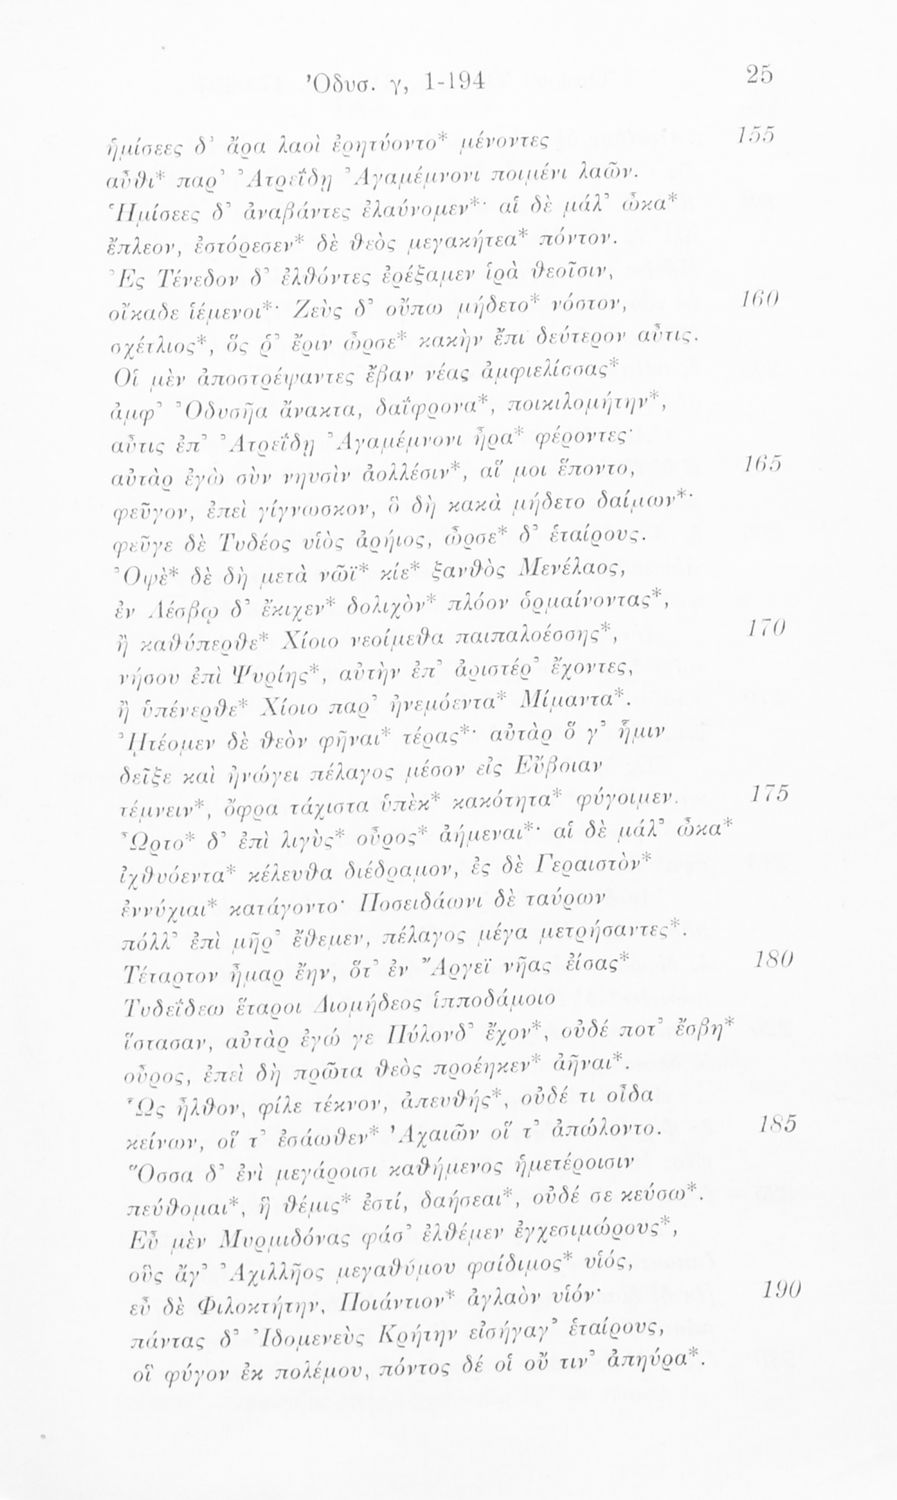 Ὀδυσ. γ, 1-194 25
ἡμίσεες δ' ἄρα λαοὶ ἐρητύοντο* μένοντες 155
αὖθι* παρ' Ἀτρεΐδῃ Ἀγαμέμνονι ποιμένι λαῶν.
Ἡμίσεες δ' ἀναβάντες ἐλαύνομεν*· αἱ δὲ μάλ' ὦκα*
ἔπλεον, ἐστόρεσεν* δὲ θεὸς μεγακήτεα* πόντον.
Ἐς Τένεδον δ' ἐλθόντες ἐρέξαμεν ἱρὰ θεοῖσιν,
οἴκαδε ἱέμενοι*· Ζεὺς δ' οὔπω μήδετο* νόστον, 160
σχέτλιος*, ὅς ῥ' ἔριν ὦρσε* κακὴν ἔπι δεύτερον αὖτις.
Οἱ μὲν ἀποστρέψαντες ἔβαν νέας ἀμφιελίσσας*
ἀμφ' Ὀδυσῆα ἄνακτα, δαΐφρονα*, ποικιλομήτην*,
αὖτις ἐπ' Ἀτρεΐδῃ Ἀγαμέμνονι ἦρα* φέροντες·
αὐτὰρ ἐγὼ σὺν νηυσὶν ἀολλέσιν*, αἵ μοι ἕποντο, 165
φεῦγον, ἐπεὶ γίγνωσκον, ὃ δὴ κακὰ μήδετο δαίμων*·
φεῦγε δὲ Τυδέος υἱὸς ἀρήιος, ὦρσε* δ' ἑταίρους.
Ὀψὲ* δὲ δὴ μετὰ νῶϊ* κίε* ξανθὸς Μενέλαος,
ἐν Λέσβῳ δ' ἔκιχεν* δολιχὸν* πλόον ὁρμαίνοντας*,
ἢ καθύπερθε* Χίοιο νεοίμεθα παιπαλοέσσης*, 170
νήσου ἐπὶ Ψυρίης*, αὐτὴν ἐπ' ἀριστέρ' ἔχοντες,
ἢ ὑπένερθε* Χίοιο παρ' ἠνεμόεντα* Μίμαντα*.
Ἠτέομεν δὲ θεὸν φῆναι* τέρας*· αὐτὰρ ὅ γ' ἧμιν
δεῖξε καὶ ἠνώγει πέλαγος μέσον εἰς Εὔβοιαν
τέμνειν*, ὄφρα τάχιστα ὑπὲκ* κακότητα* φύγοιμεν. 175
Ὦρτο* δ' ἐπὶ λιγὺς* οὖρος* ἀήμεναι*· αἱ δὲ μάλ' ὦκα*
ἰχθυόεντα* κέλευθα διέδραμον, ἐς δὲ Γεραιστὸν*
ἐννύχιαι* κατάγοντο· Ποσειδάωνι δὲ ταύρων
πόλλ' ἐπὶ μῆρ' ἔθεμεν, πέλαγος μέγα μετρήσαντες*.
Τέταρτον ἦμαρ ἔην, ὅτ' ἐν Ἄργεϊ νῆας ἐίσας* 180
Τυδεΐδεω ἕταροι Διομήδεος ἱπποδάμοιο
ἵστασαν, αὐτὰρ ἐγώ γε Πύλονδ' ἔχον*, οὐδέ ποτ' ἔσβη*
οὖρος, ἐπεὶ δὴ πρῶτα θεὸς προέηκεν* ἀῆναι*.
Ὣς ἦλθον, φίλε τέκνον, ἀπευθής*, οὐδέ τι οἶδα
κείνων, οἵ τ' ἐσάωθεν* Ἀχαιῶν οἵ τ' ἀπώλοντο. 185
Ὅσσα δ' ἐνὶ μεγάροισι καθήμενος ἡμετέροισιν
πεύθομαι*, ἣ θέμις* ἐστί, δαήσεαι*, οὐδέ σε κεύσω*.
Εὖ μὲν Μυρμιδόνας φάσ' ἐλθέμεν ἐγχεσιμώρους*,
οὓς ἄγ' Ἀχιλλῆος μεγαθύμου φαίδιμος* υἱός,
εὖ δὲ Φιλοκτήτην, Ποιάντιον* ἀγλαὸν υἱόν· 190
πάντας δ' Ἰδομενεὺς Κρήτην εἰσήγαγ' ἑταίρους,
οἳ φύγον ἐκ πολέμου, πόντος δέ οἱ οὔ τιν' ἀπηύρα*.